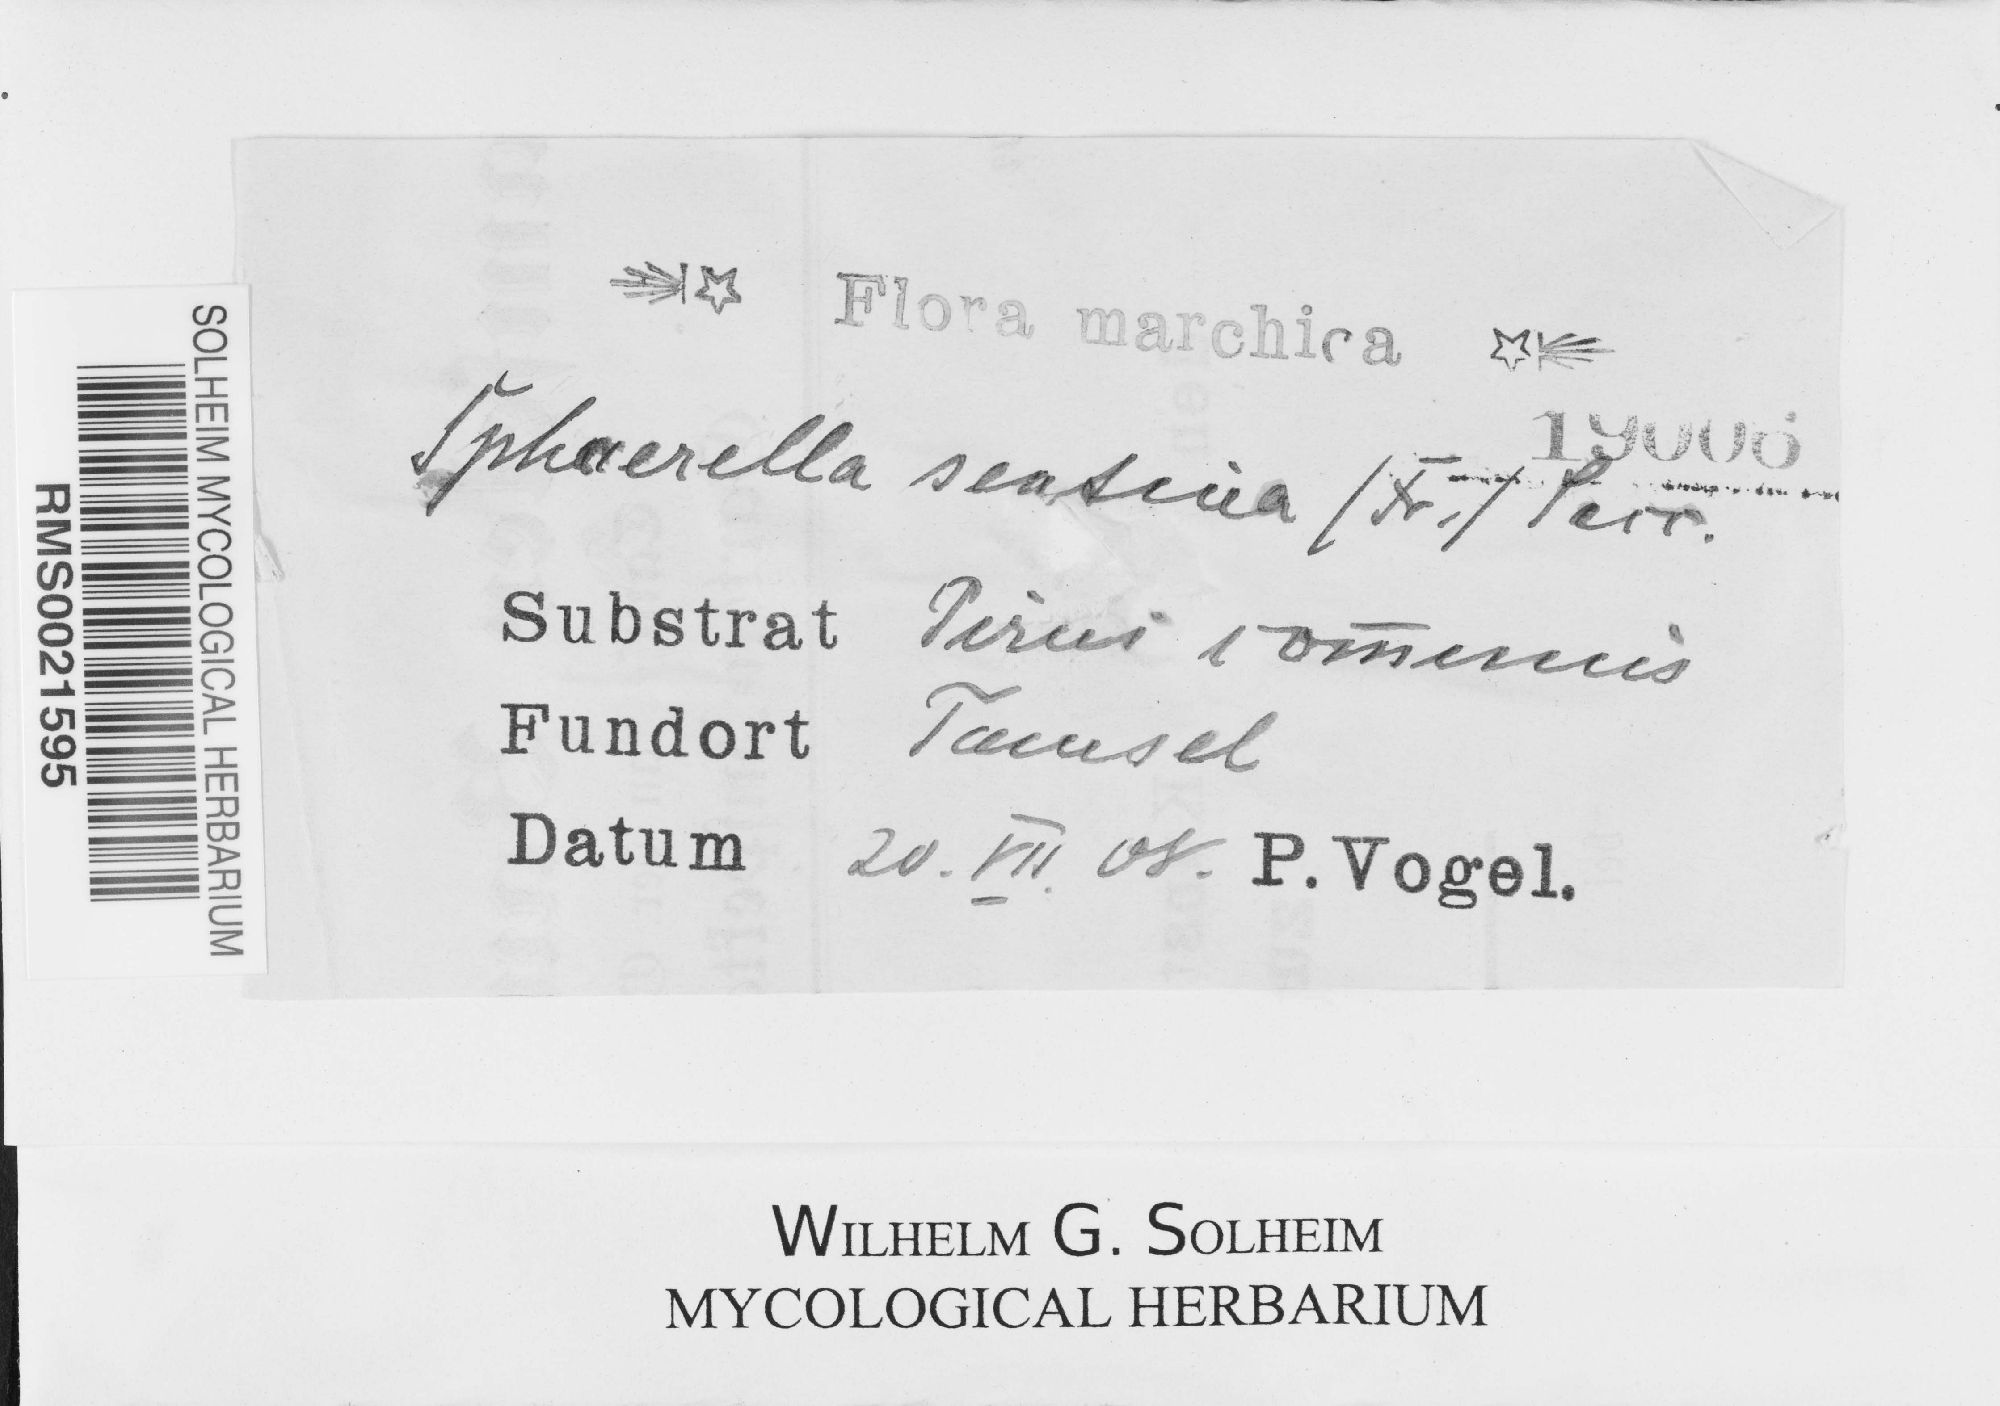 Flora marchica
19006
Sphaerella sentina (Fr.)
Substrat Pirus com̅unis
Fundort Tamsel
Datum 20. VII. 08. P. Vogel.
SOLHEIM MYCOLOGICAL HERBARIUM
RMS0021595
WILHELM G. SOLHEIM
MYCOLOGICAL HERBARIUM